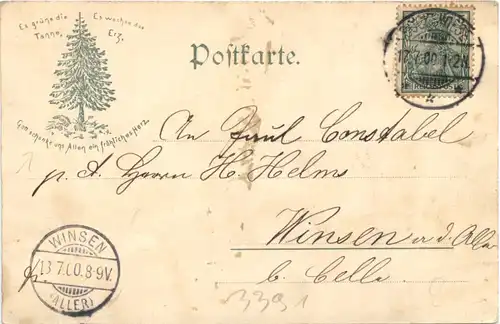 Es grüne die Tanne,
Es wachse das Erz,
Gott schenke uns Allen ein fröhliches Herz.
Postkarte.
12.7.00.1-2N.
REICHSPOST
An Paul Constabel
p. A. Herrn H. Helms
Winsen a. d. Aller
b. Celle
WINSEN
13.7.00.8-9V.
(ALLER)
3391